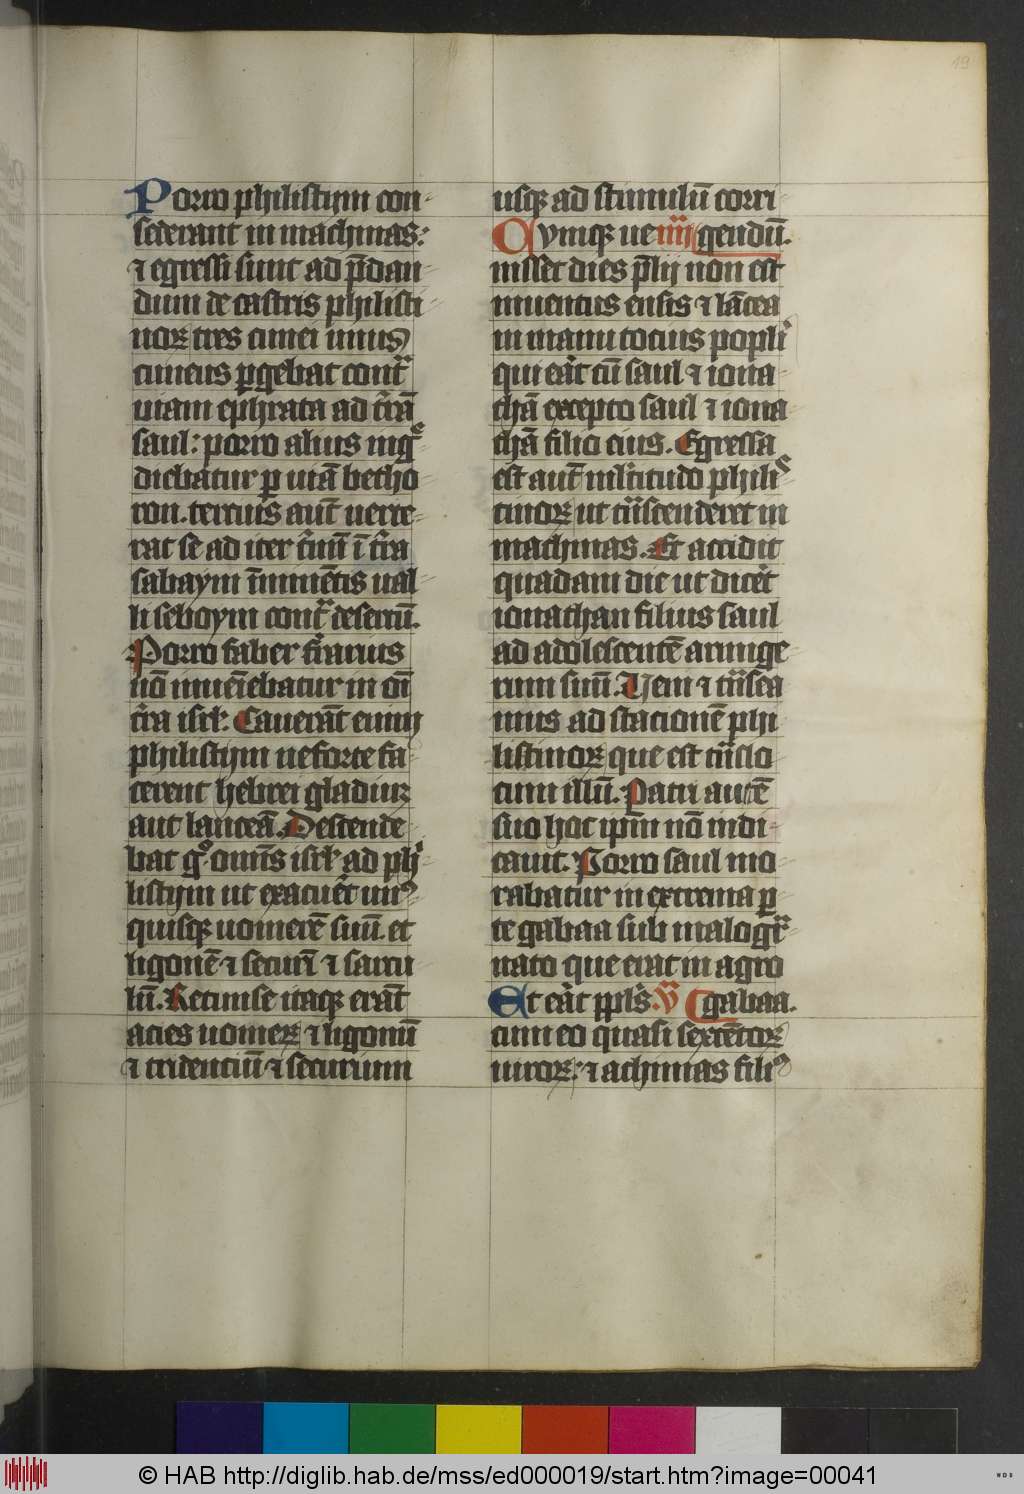 19
Porro philistijm con-
sederant in machmas:
⁊ egressi sunt ad p̄dan-
dum de castris philisti
noꝝ tres cunei unus
cuneus ꝑgebat contᷓ
uiam ephrata ad t̄rā
saul: porro alius ingͤ
diebatur ꝑ uiā betho
ron. tercius aut̄ uerte-
rat se ad iter t̄mīi ī t̄ra
sabaym īminētis ual-
li seboym contᷓ desertū.
Porro faber ferrarius
nō inueīebatur in oī
t̄ra isrl̄: Cauerāt enim
philistijm ne forte fa-
cerent hebrei gladiuꝫ
aut lanceā. Descende-
bat gͦ omīs isrl̄ ad phͥ
listijm ut exacuēt unꝰ
quisqꝫ uomerē suū. et
ligonē ⁊ securī ⁊ sarcu
lū. Retunse itaqꝫ erāt
acies uomeꝝ ⁊ ligonū
⁊ tridentiū ⁊ securium
usqꝫ ad stimulū corri
Cvmqꝫ ue iiij gendū.
nisset dies p̄lij non est
inuentus ensis ⁊ lācea
in manu tocius popli̾
qui eāt cū saul ⁊ iona-
thā excepto saul ⁊ iona
thā filio eius. Egressa
est aut̄ ml̄titudo philiͤ
tinoꝝ ut trāscenderet in
machmas. Et accidit
quadam die ut dicēt
ionathan filius saul
ad adolescentē armige
rum suū. Veni ⁊ trāsea
mus ad stacionē phi
listinoꝝ que est trāslo
cum illū. Patri autē
suo hoc ipm̄ nō indi-
cauit. Porro saul mo
rabatur in extrema ꝑ
te gabaa sub malogᷓ
nato que erat in agro
Et eāt ppl̄s v̄ gabaa.
cum eo quasi sexcētoꝝ
uiroꝝ: ⁊ achimas filiꝰ
© HAB http://diglib.hab.de/mss/ed000019/start.htm?image=00041